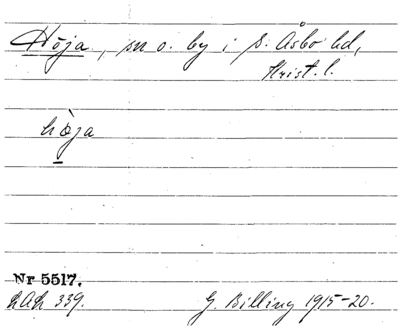 Höja, sn o. by i S. Åsbo hd,
Krist. l.
hòja
Nr 5517.
LAL 339.
G. Billing 1915-20.